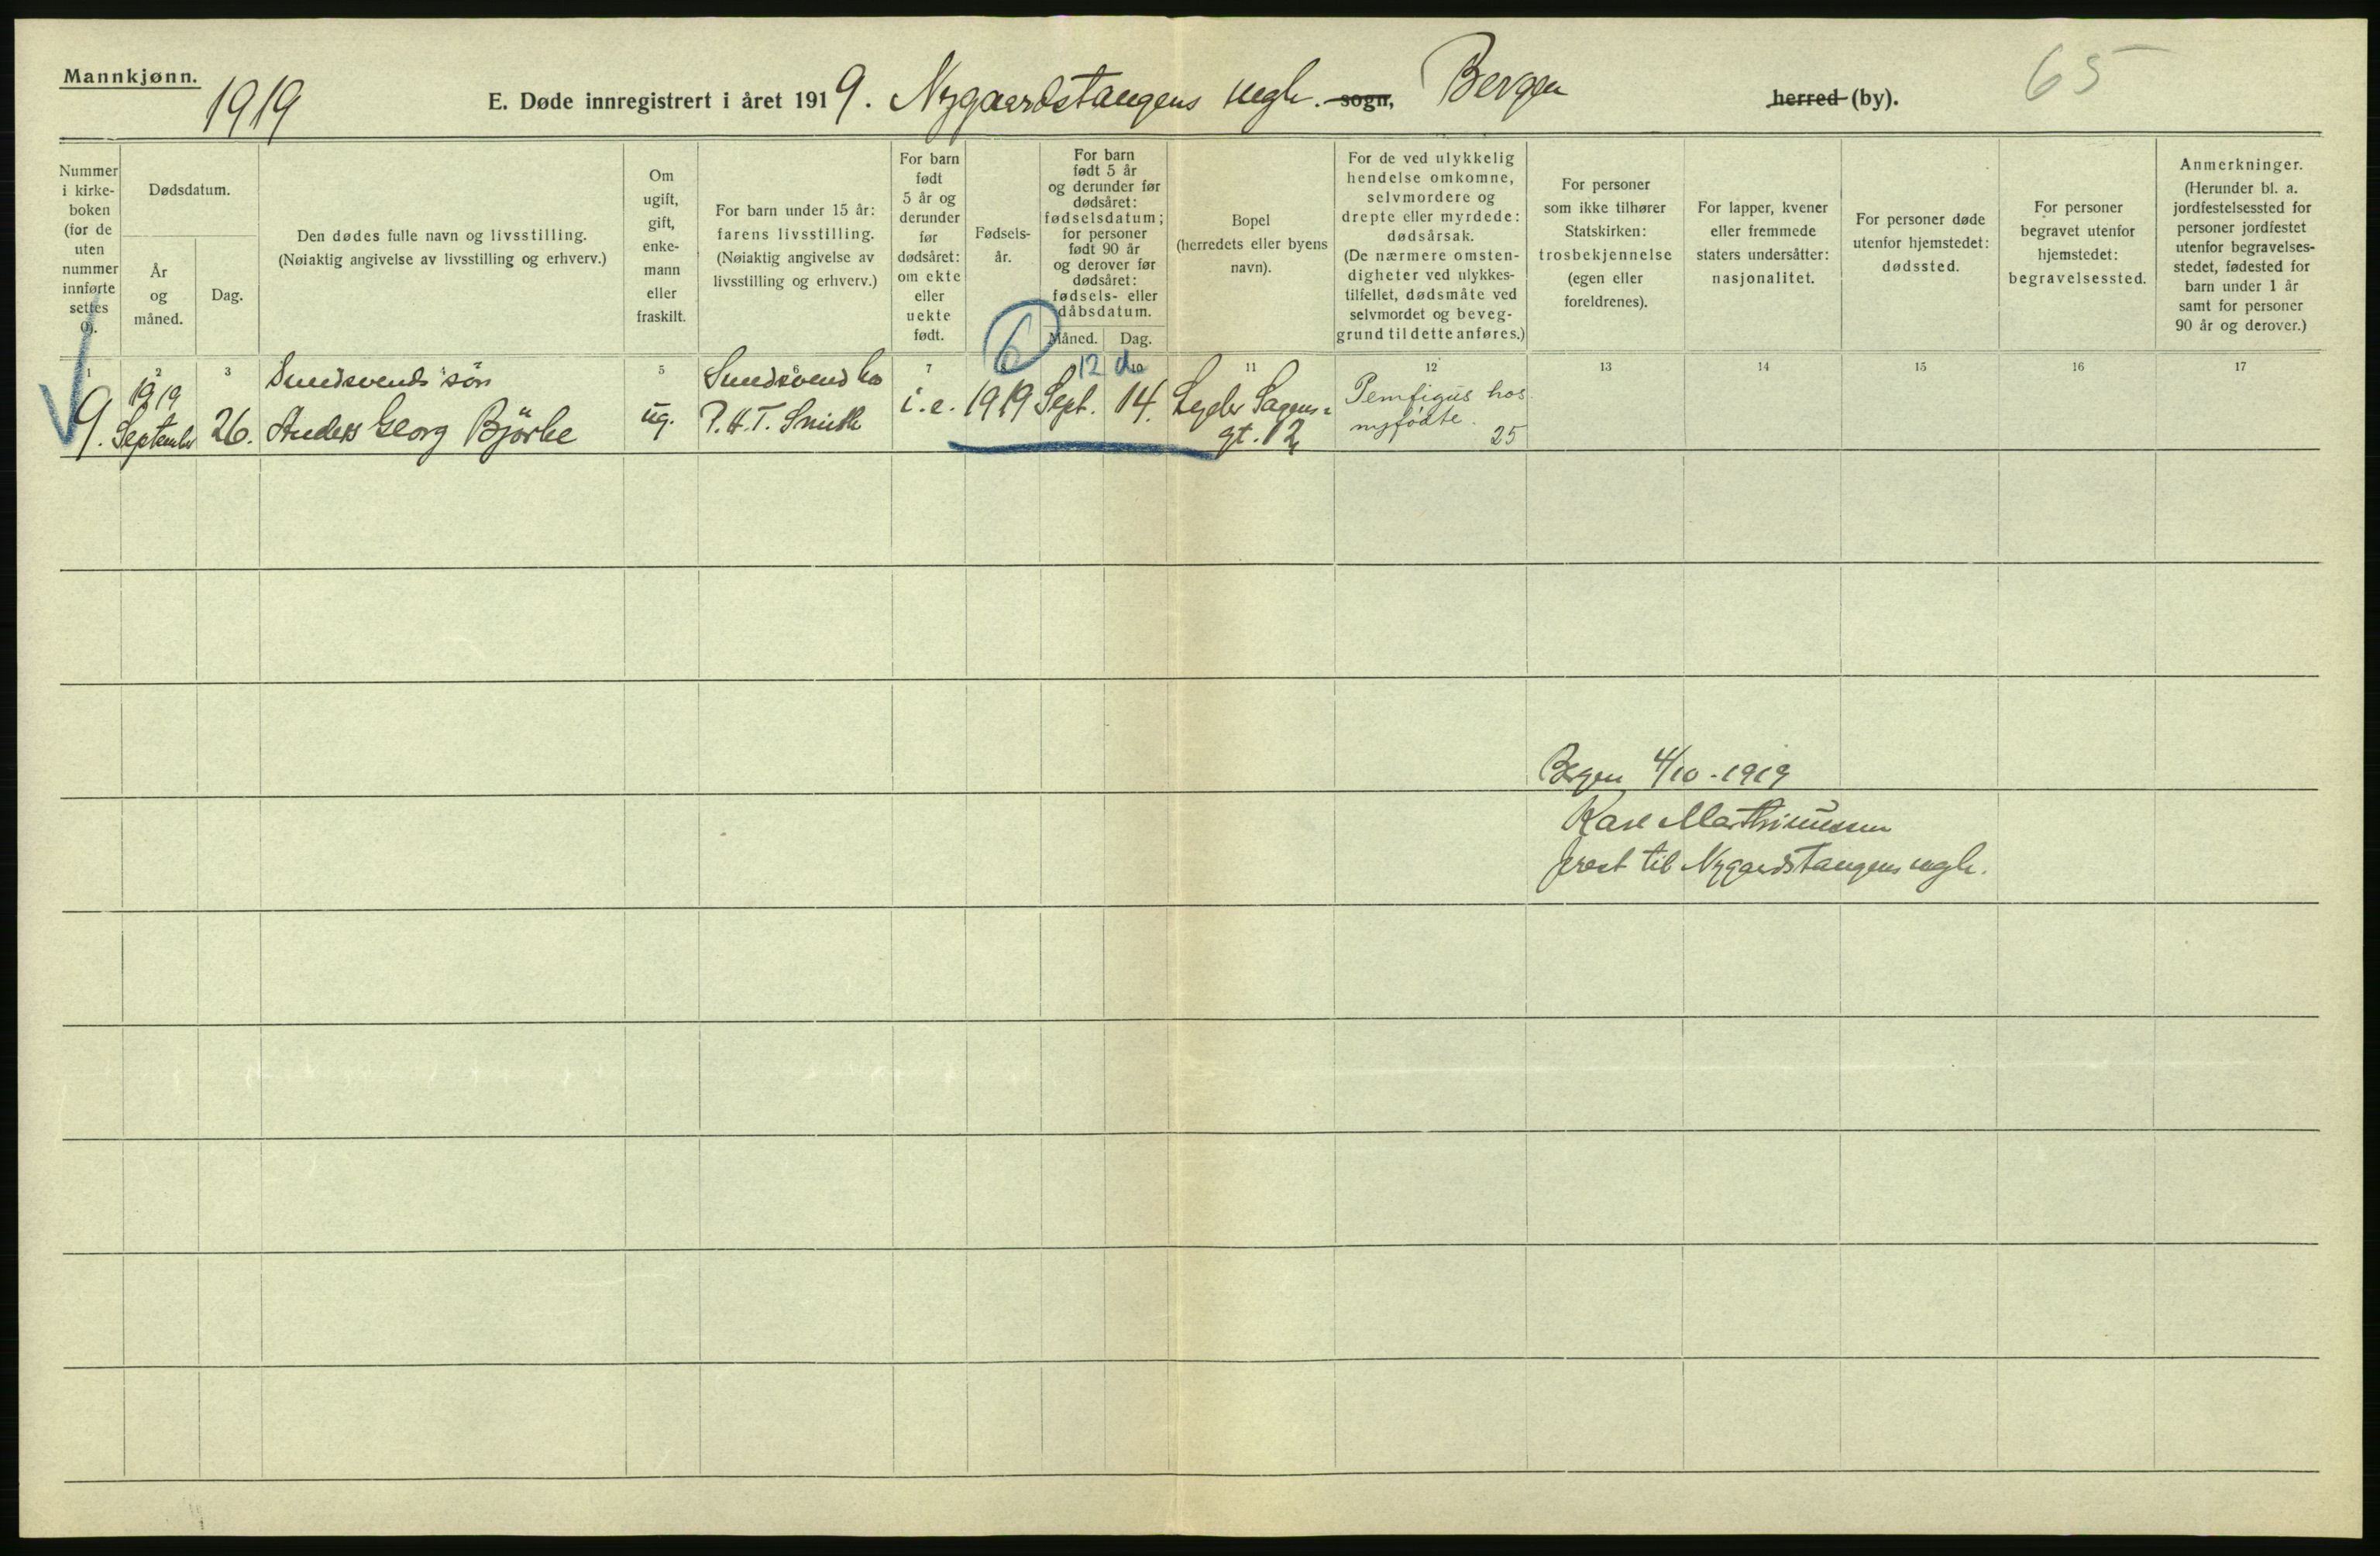 Mannkjønn.
1919
E. Døde innregistrert i året 1919. Nygaardstangens mgh. sogn, Bergen herred (by).
65
Nummer
i kirke-
boken
(for de
uten
nummer
innførte
settes
0).
Dødsdatum.
År
og
måned.
Dag.
Den dødes fulle navn og livsstilling.
(Nøiaktig angivelse av livsstilling og erhverv.)
Om
ugift,
gift,
enke-
mann
eller
fraskilt.
For barn under 15 år:
farens livsstilling.
(Nøiaktig angivelse av
livsstilling og erhverv.)
For barn
født
5 år og
derunder
før
dødsåret:
om ekte
eller
uekte
født.
Fødsels-
år.
For barn
født 5 år
og derunder før
dødsåret:
fødselsdatum;
for personer
født 90 år
og derover før
dødsåret:
fødsels- eller
dåbsdatum.
Måned.
Dag.
Bopel
(herredets eller byens
navn).
For de ved ulykkelig
hendelse omkomne,
selvmordere og
drepte eller myrdede:
dødsårsak.
(De nærmere omsten-
digheter ved ulykkes-
tilfellet, dødsmåte ved
selvmordet og beveg-
grund til dette anføres.)
For personer
som ikke tilhører
Statskirken:
trosbekjennelse
(egen eller
foreldrenes).
For lapper, kvener
eller fremmede
staters undersåtter:
nasjonalitet.
For personer døde
utenfor hjemstedet:
dødssted.
For personer
begravet utenfor
hjemstedet:
begravelsessted.
Anmerkninger.
(Herunder bl. a.
jordfestelsessted for
personer jordfestet
utenfor begravelses-
stedet, fødested for
barn under 1 år
samt for personer
90 år og derover.)
6
12
1 2 3 5 6 7 11 12 13 14 15 16 17
1919
Smedsvends søn
Smedsvend
9. September 26. Anders Georg Bjørke ug. P.H.T. Smith i.e. 1919 Sept. 14. Lyder Sagens
gt. 12
Pemfigus hos
nyfødte.
25
Bergen 4/10-1919
Karl Marthinussen
prest til Nygaardstangens mgh.